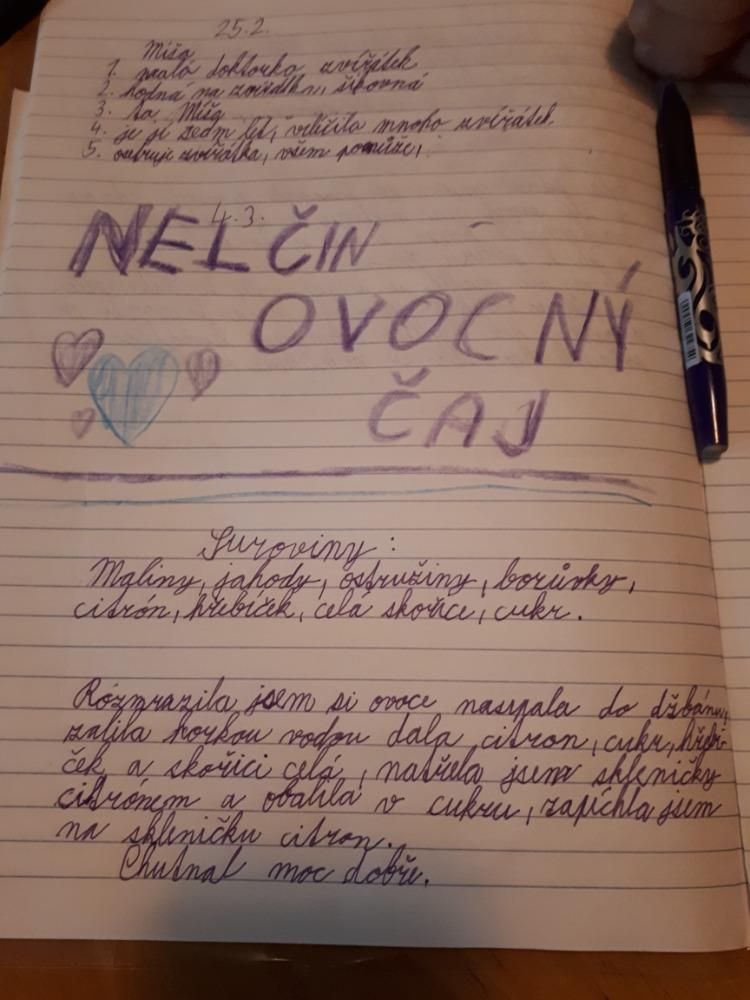 25.2.
Míša
1. malá doktorka zvířátek
2. hodná na zvířátka, šikovná
3. ta Míša
4. je jí sedm let, vyléčila mnoho zvířátek.
5. zvířátka, všem pomůže,
4.3.
NELČIN
OVOCNÝ
ČAJ
Suroviny:
Maliny, jahody, ostružiny, borůvky,
citrón, hřebíček, celá skořice, cukr.
Rozmrazila jsem si ovoce nasypala do džbánu,
zalila horkou vodou dala citron, cukr, hřebí-
ček a skořici celá, natřela jsem skleničky
citrónem a obalila v cukru, zapíchla jsem
na skleničku citron.
Chutnal moc dobře.